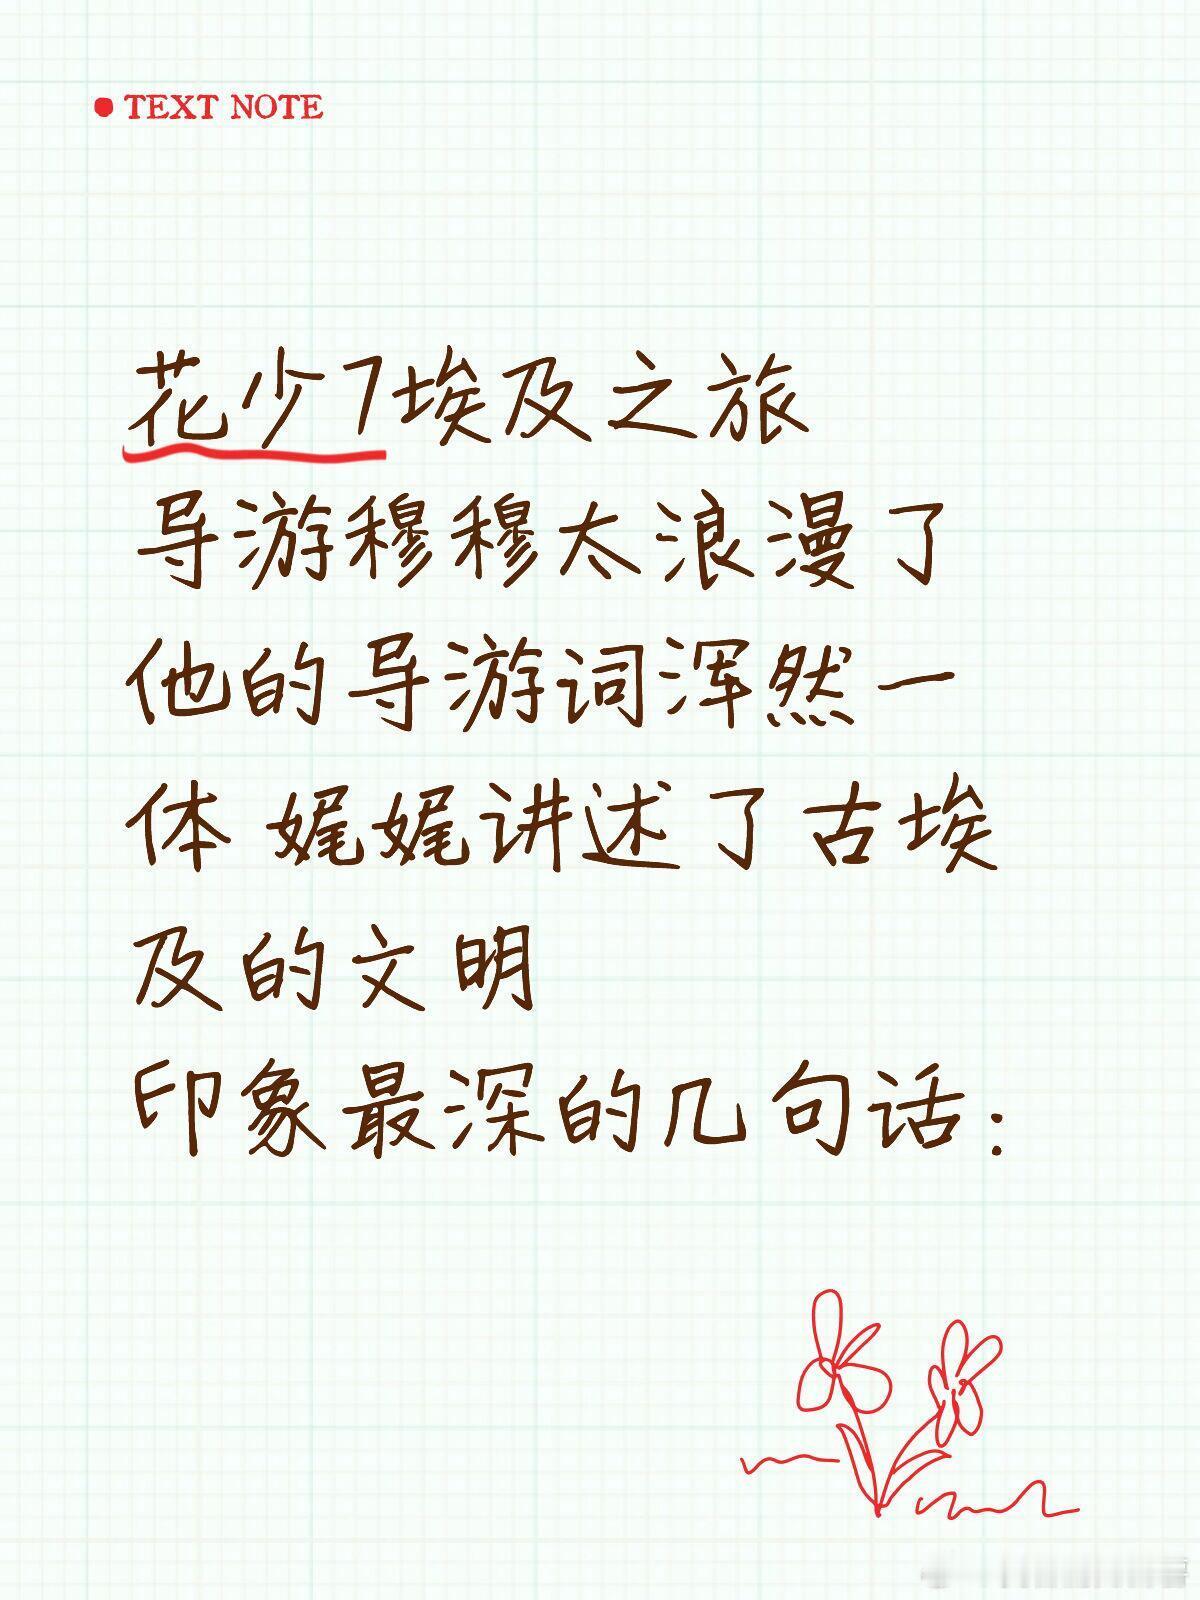 TEXT NOTE
花少7埃及之旅
导游穆穆太浪漫了
他的导游词浑然一
体 娓娓讲述了古埃
及的文明
印象最深的几句话：